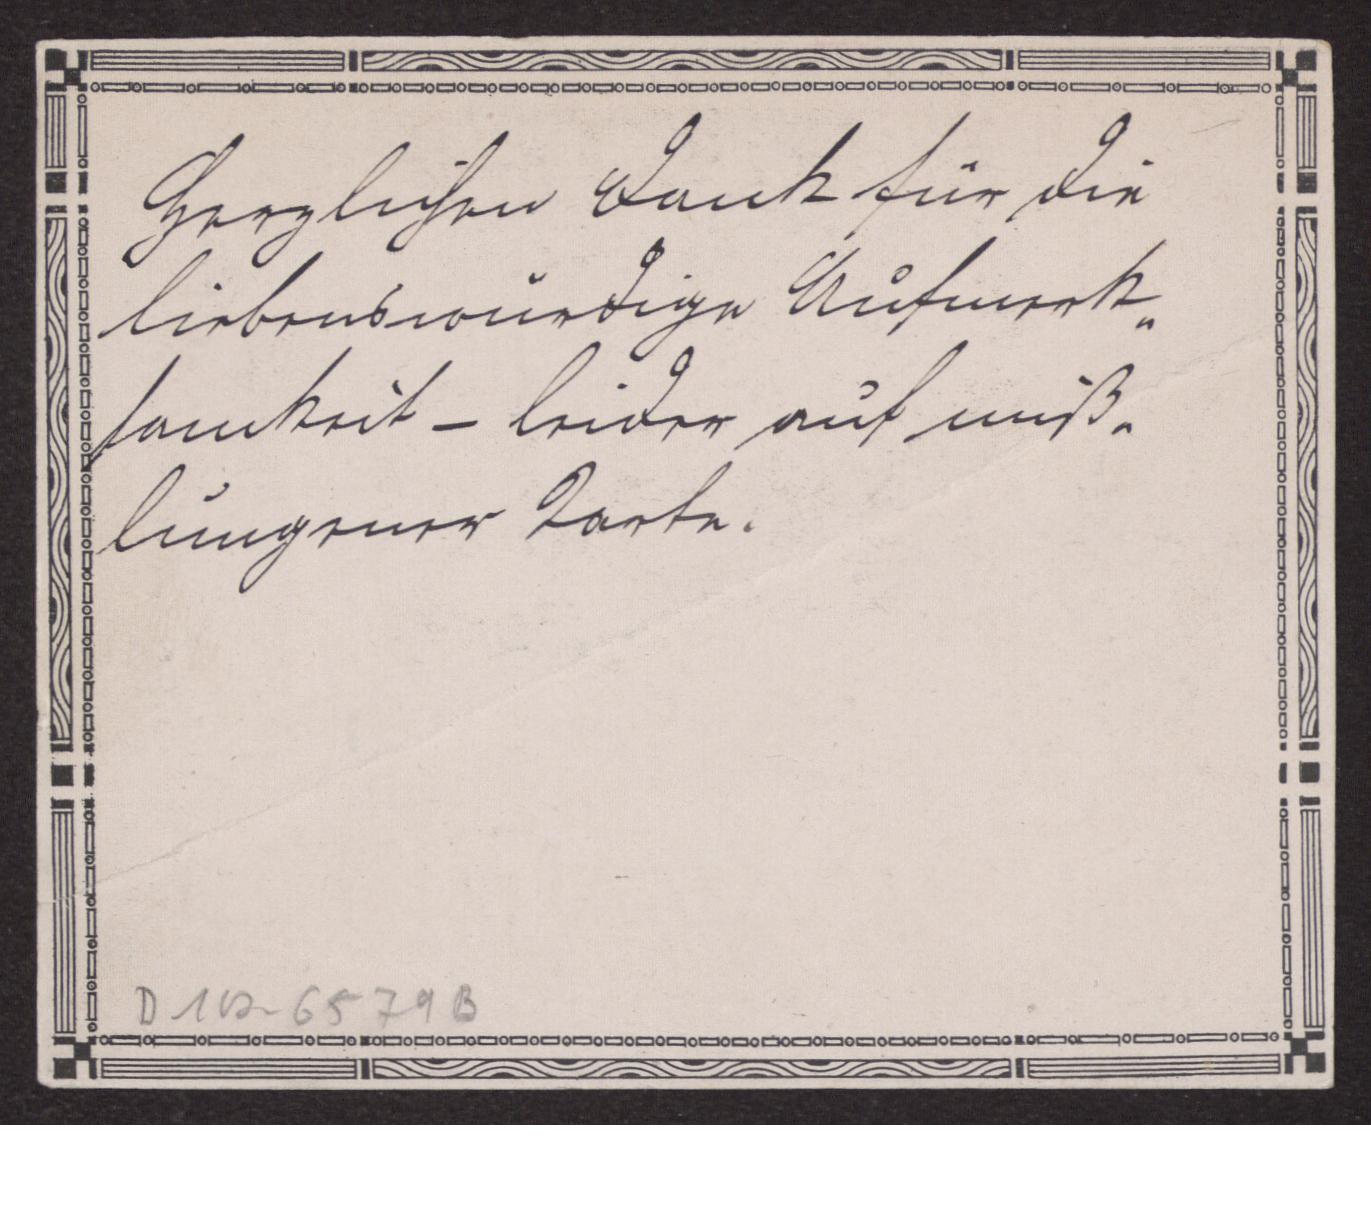 Herzlichen Dank für die
liebenswürdige Aufmerk„
samkeit – leider auf miß„
lungener Karte.
6579 B